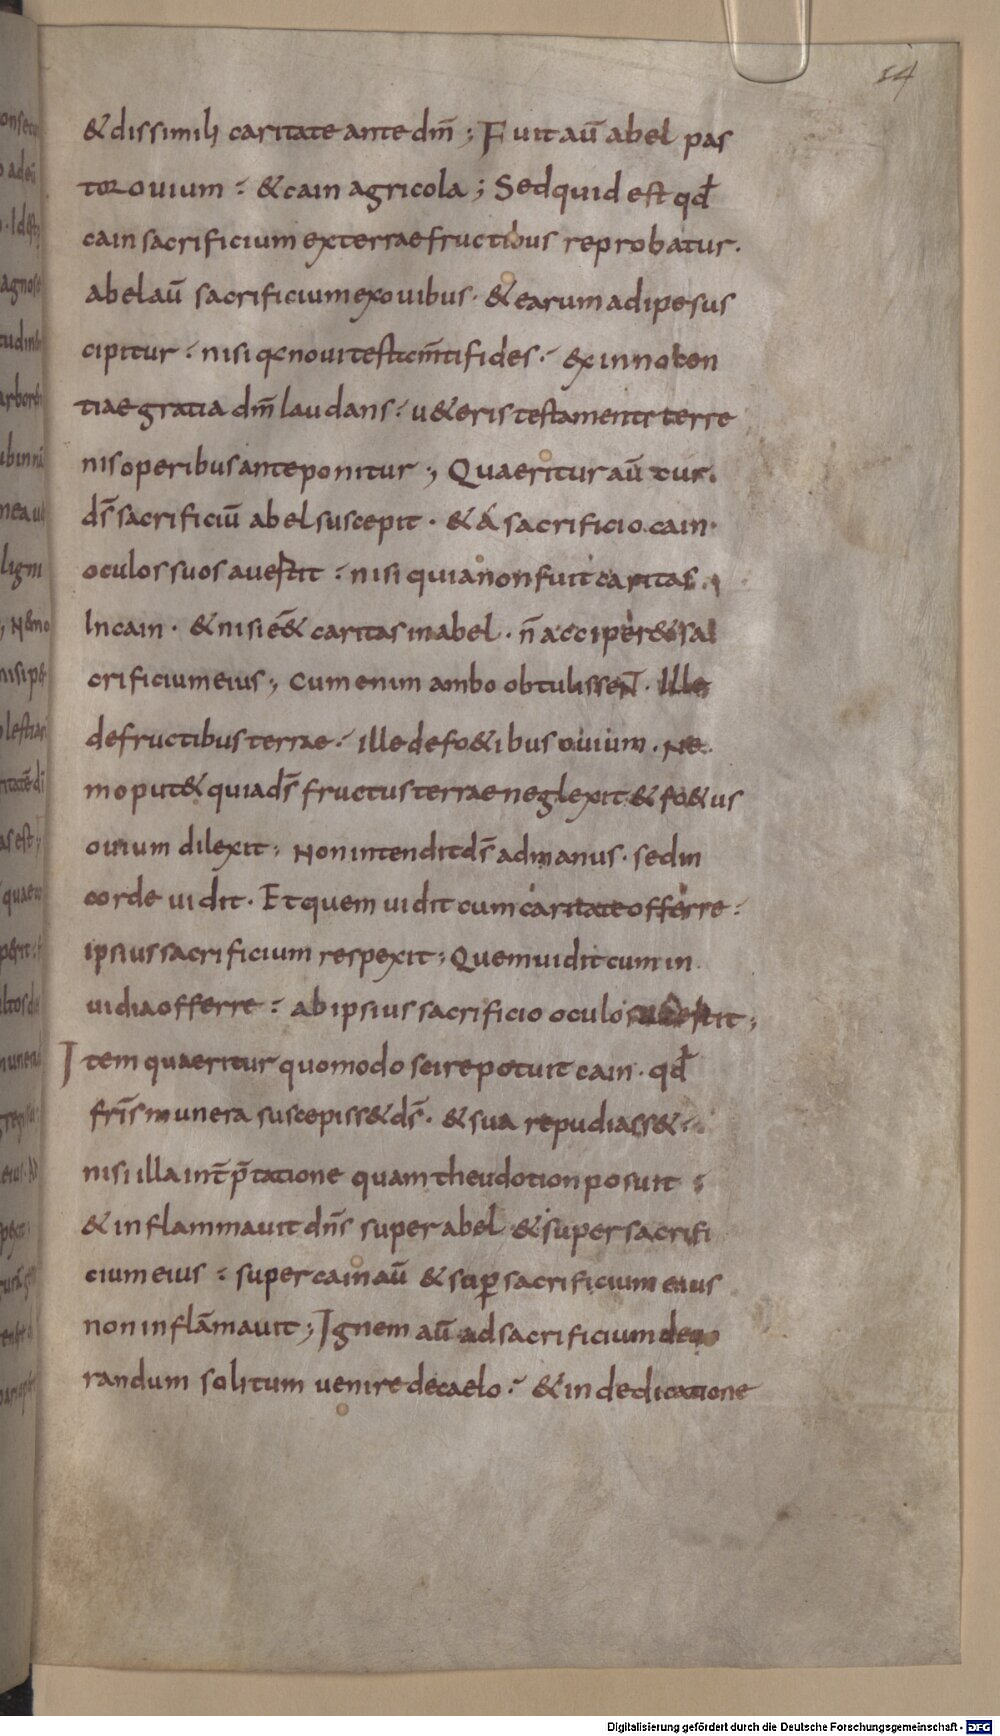 14
& dissimili caritate ante dm̄; Fuit au̅ abel pas
tor ouium : & cain agricola; Sed quid est qđ
cain sacrificium ex terrae fructibus reprobatur.
abel au̅ sacrificium ex ouibus. & earum adipe sus
cipitur : nisi qc nouit est  fides. & ex innocen
tiae gratia dm̄ laudans : u&eris testamenti terre
nis operibus anteponitur; Quaeritur au̅ cur.
ds̄ sacrificiū abel suscepit. & a sacrificio cain.
oculos suos auertit : nisi quia non fuit caritas
In cain. & nisi ēē& caritas in abel. n̄ acciper& sa
crificium eius; Cum enim ambo obtulissent. Ille
de fructibus terrae. ille de fo&ibus ouium. Ne
mo put& quia ds̄ fructus terrae neglexit & fo&us
ouium dilexit; Non intendit ds̄ ad manus. sed in
corde uidit. Et quem uidit cum caritate offerre :
ipsius sacrificium respexit; Quem uidit cum in
uidia offerre : ab ipsius sacrificio oculos auertit;
Item quaeritur quomodo scire potuit cain. qđ
fr̄is munera suscepiss& ds̄. & sua repudiass&
nisi illa int̄p̄tatione quam theudotion posuit ;
& inflammauit dn̄s super abel & super sacrifi
cium eius : super cain au̅ & sup̲ sacrificium eius
non inflāmauit; Ignem au̅ ad sacrificium deuo
randum solitum uenire de caelo. & in dedicatione
Digitalisierung gefördert durch die Deutsche Forschungsgemeinschaft - DFG